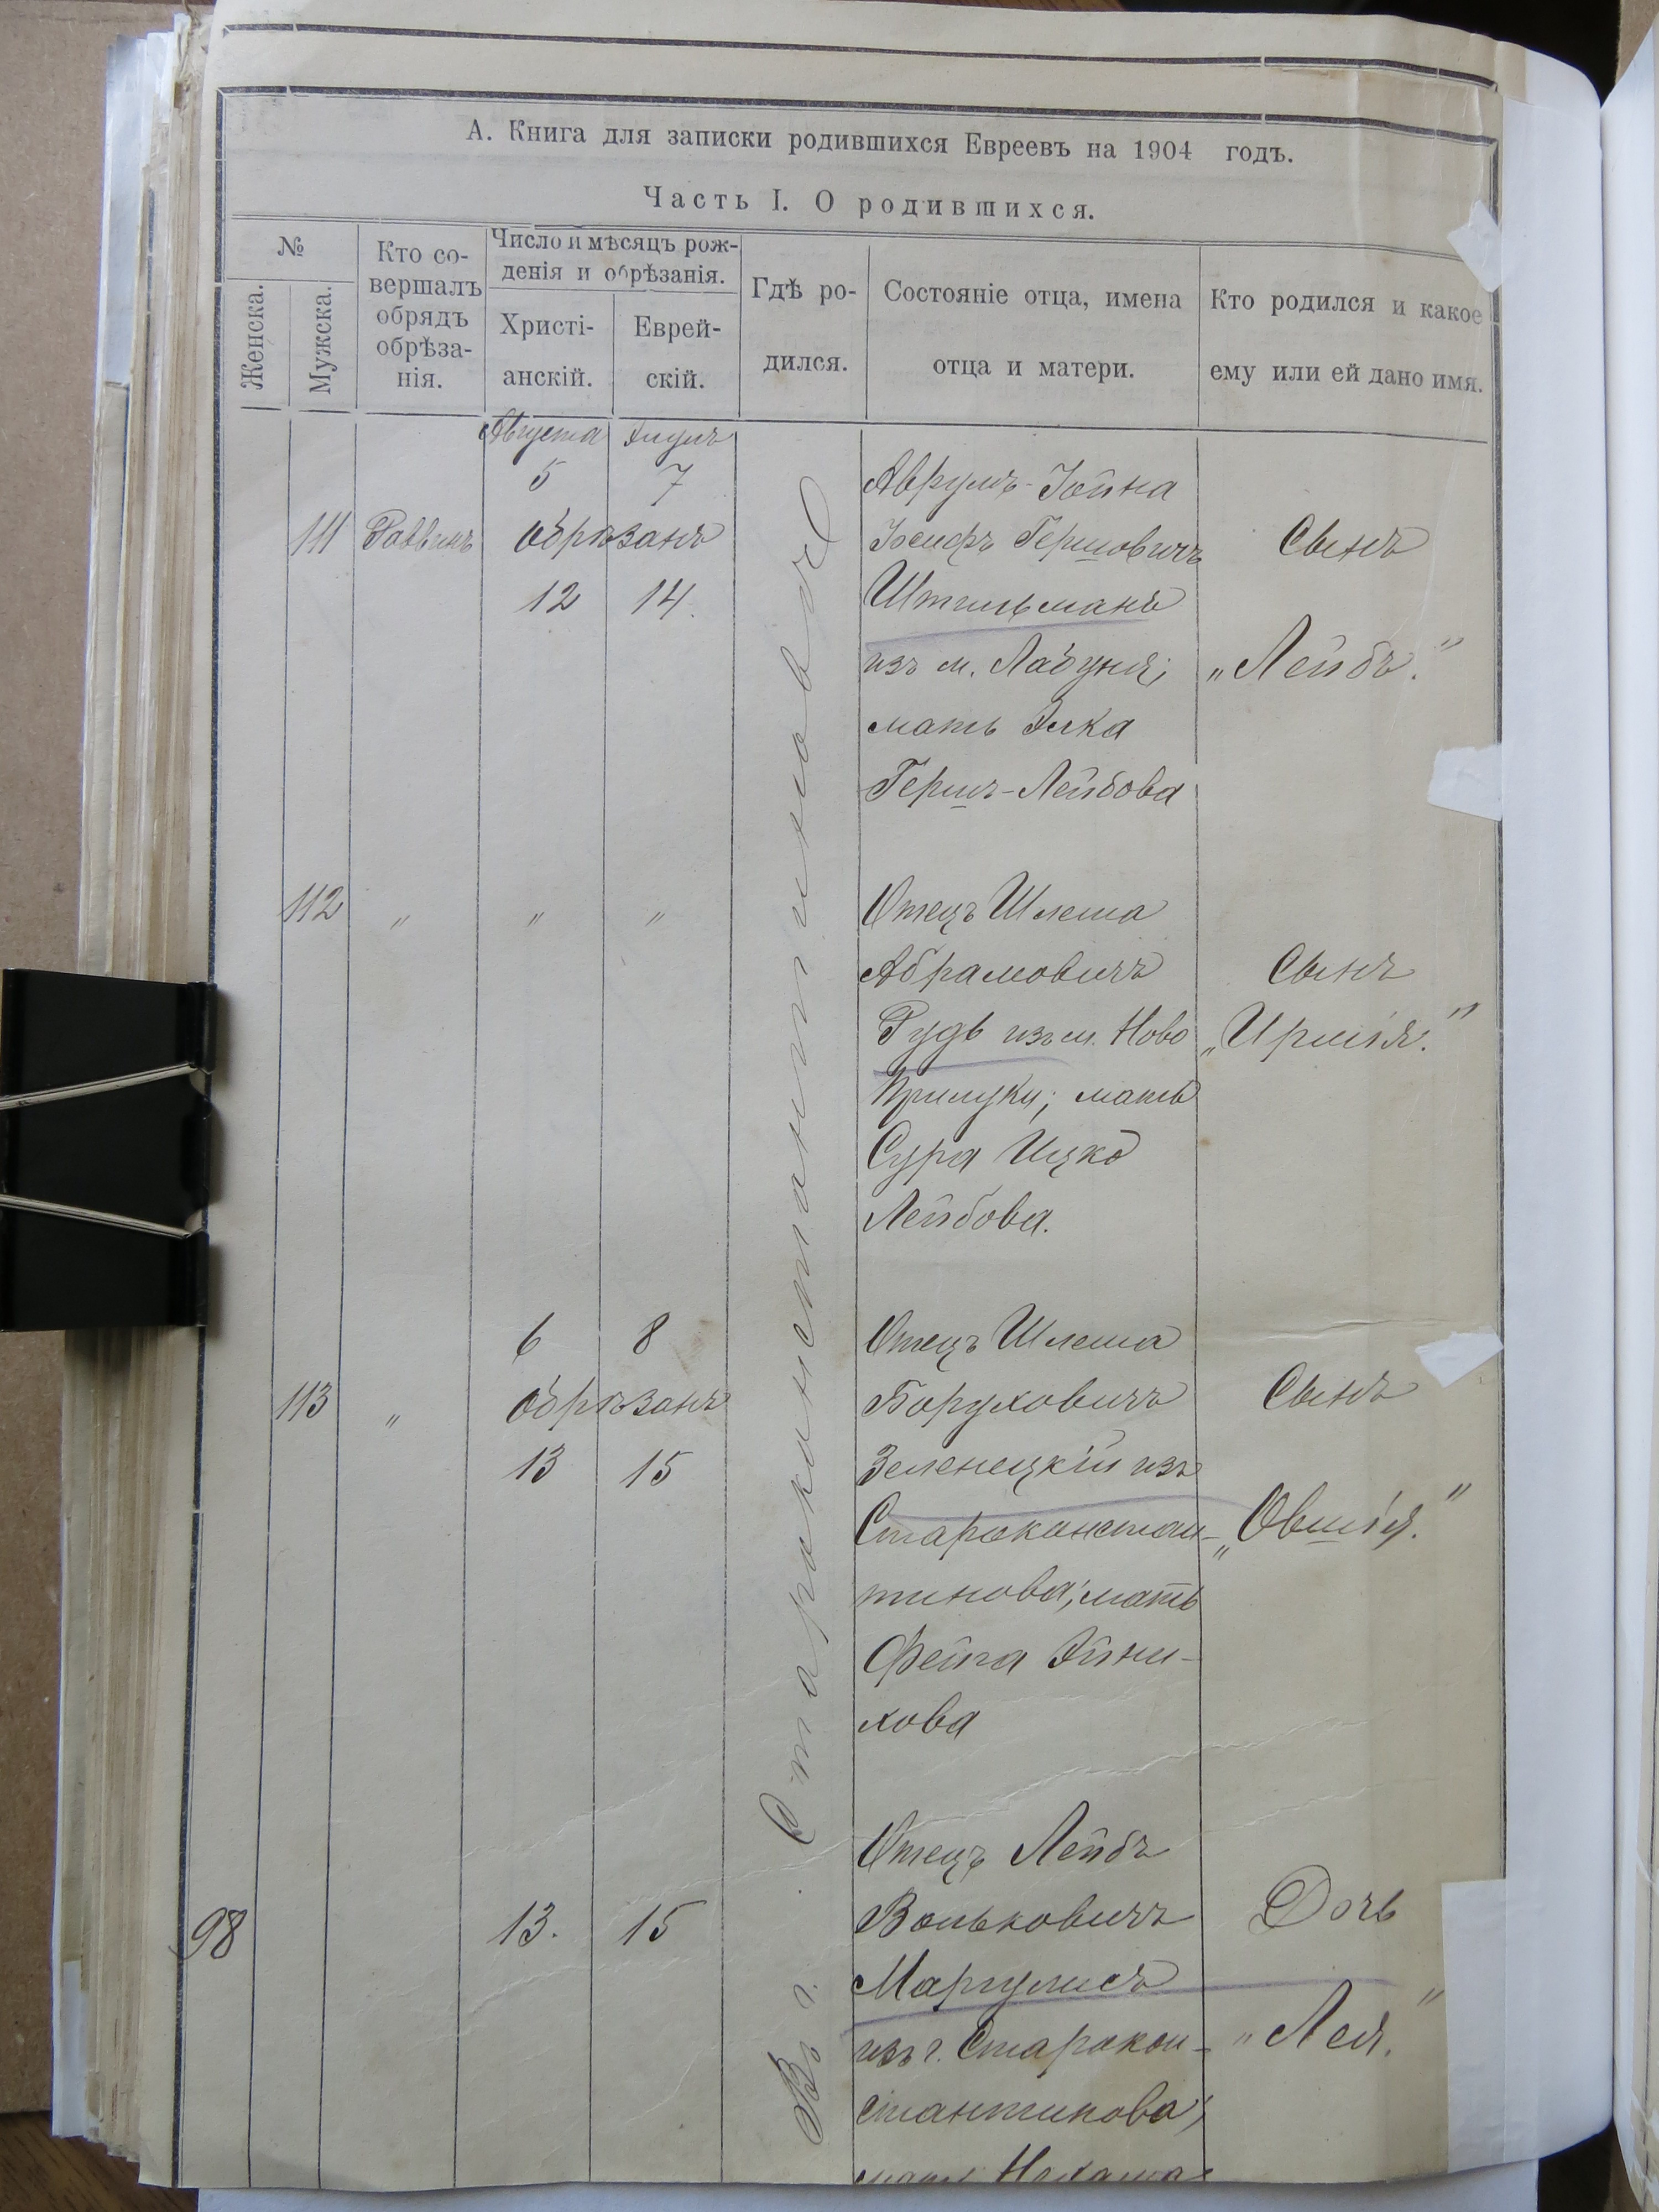 А. Книга для записки родившихся Евреевъ на 1904 годъ.
Часть I. О родившихся.
№
Женска.
Мужска.
Кто со-
вершалъ
обрядъ
обрѣза-
нія.
Число и мѣсяцъ рож-
денія и обрѣзанія.
Христі-
анскій.
Еврей-
скій.
Гдѣ ро-
дился.
Состояніе отца, имена
отца и матери.
Кто родился и какое
ему или ей дано имя.
Августа Элулъ
5 7
111 Раввинъ обрѣзанъ
12 14.
Въ г. Староконстантиновѣ
Аврумъ-Іойна
Іосифъ Гершовичъ
Штильманъ
изъ м. Лабуня;
мать Элка
Гершъ-Лейбова
Сынъ
„Лейбъ."
112 " " "
Отецъ Шлема
Абрамовичъ
Рудь изъ м. Ново
Прилуки; мать
Сура Ицко
Лейбова.
Сынъ
„Ирмія."
6 8
113 " обрѣзанъ
13 15
Отецъ Шлема
Боруховичъ
Зеленецкій изъ
Староконстан-
тинова; мать
Фейга Эйни-
хова
Сынъ
„Овшія."
98 13. 15
Отецъ Лейбъ
Вольковичъ
Маргулисъ
изъ г. Старокон-
стантинова;
мать
Дочь
„Лея."